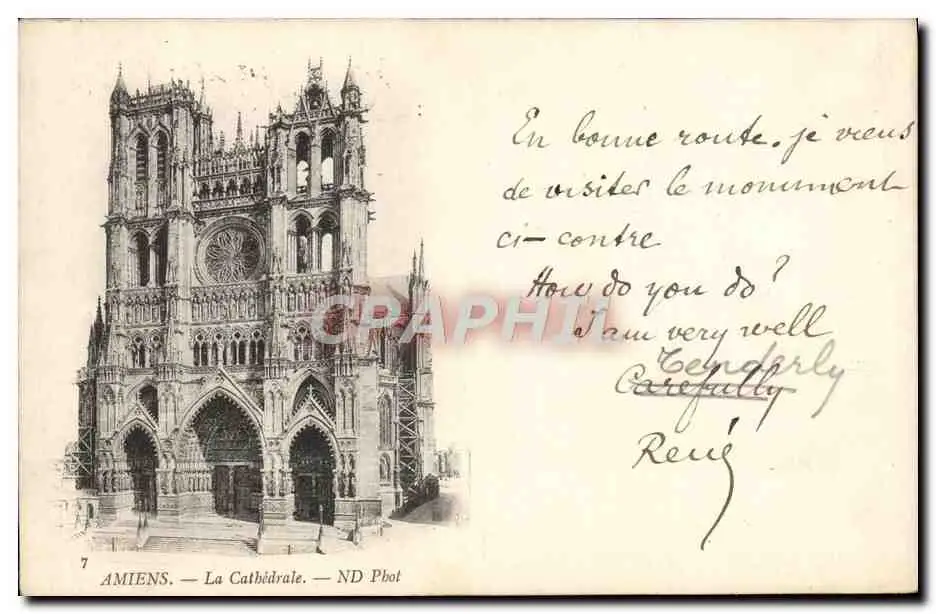 En bonne route. je viens
de visiter le monument
ci-contre
How do you do?
I am very well
Tenderly
Carefully
René
CPAPHIL
7
AMIENS. — La Cathédrale. — ND Phot